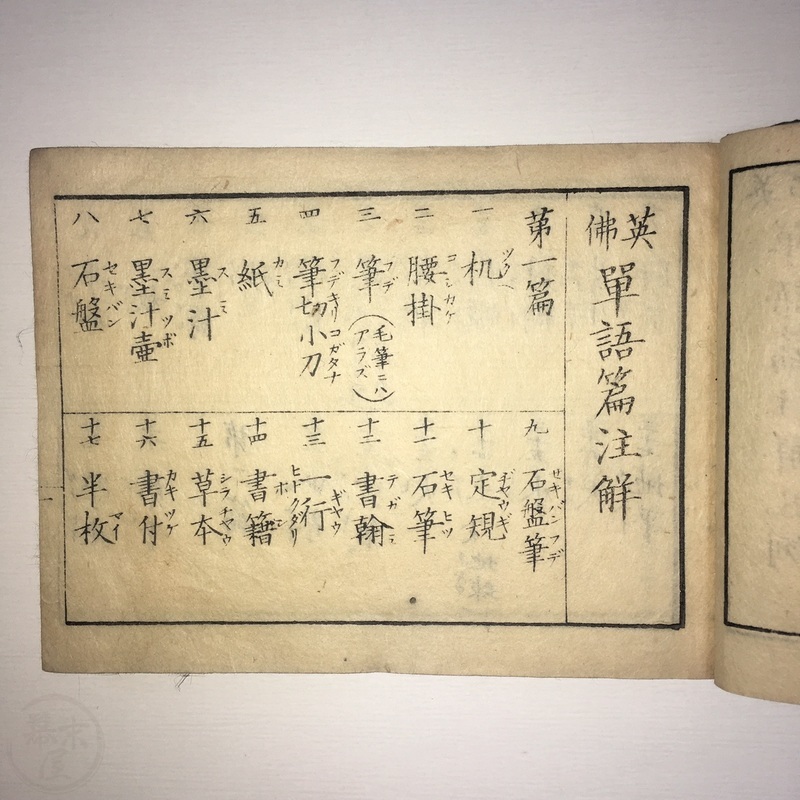 英佛 單語篇注解
第一篇
一 机 ツクヘ
二 腰掛 コシカケ
三 筆 フデ (毛筆ニハアラズ)
四 筆切小刀 フデキリコガタナ
五 紙 カミ
六 墨汁 スミ
七 墨汁壷 スミツボ
八 石盤 セキバン
九 石盤筆 セキバンフデ
十 定規 ヂヤウギ
十一 石筆 セキヒツ
十二 書翰 テガミ
十三 一行 ヒトクダリ ギヤウ
十四 書籍 ホン
十五 草本 シラチヤウ
十六 書付 カキツケ
十七 半枚 マイ